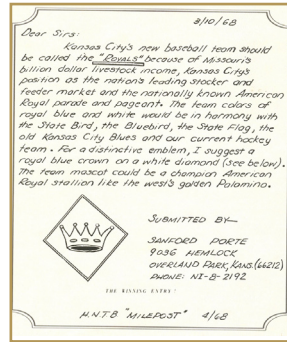 3/10/68
Dear Sirs:
Kansas City's new baseball team should
be called the "ROYALS" because of Missouri's
billion dollar livestock income, Kansas City's
position as the nation's leading stocker and
feeder market and the nationally known American
Royal parade and pageant. The team colors of
royal blue and white would be in harmony with
the State Bird, the Bluebird, the State Flag, the
old Kansas City Blues and our current hockey
team. For a distinctive emblem, I suggest a
royal blue crown on a white diamond (see below).
The team mascot could be a champion American
Royal stallion like the west's golden Palomino.
SUBMITTED BY—
SANFORD PORTE
9036 HEMLOCK
OVERLAND PARK, KANS. (66212)
PHONE: NI-8-2192
THE WINNING ENTRY!
H.N.T.B "MILEPOST" 4/68